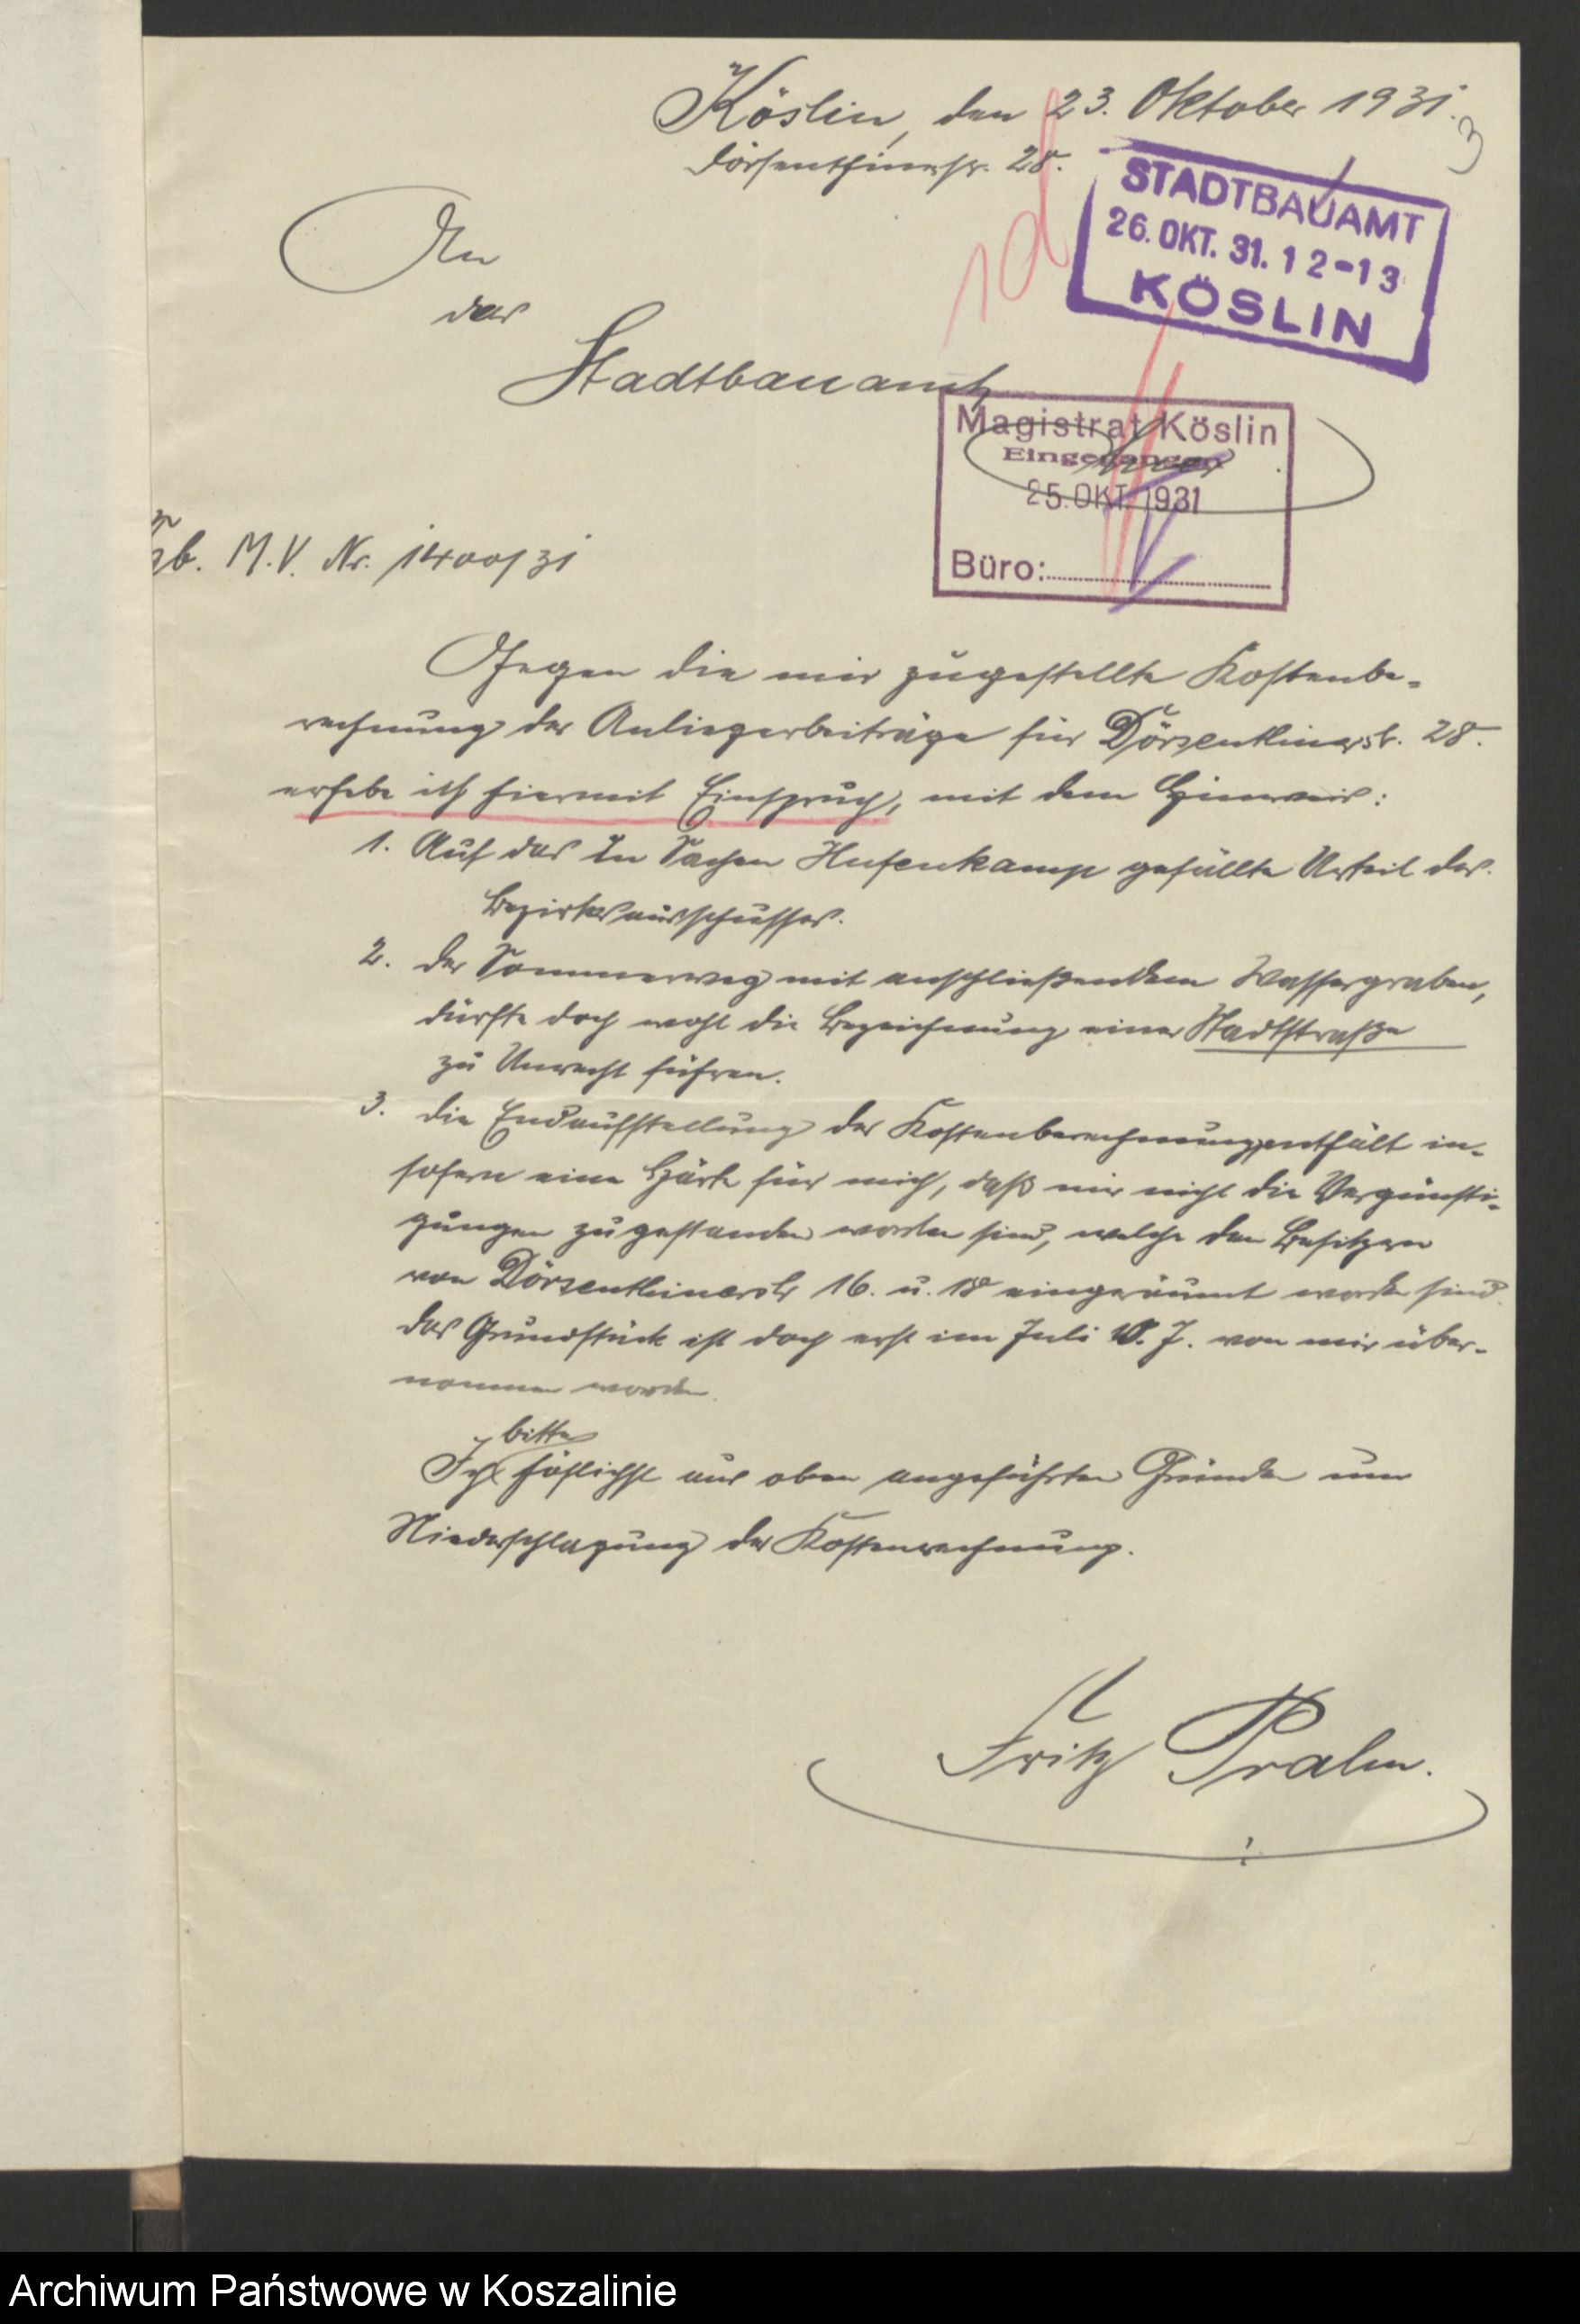 Köslin, den 23. Oktober 1931.
3
Dörsenthinerstr. 28.
STADTBAUAMT
26. OKT. 31. 12-13
KÖSLIN
An
das
Stadtbauamt
Magistrat Köslin
Eingegangen
25. OKT. 1931
Büro:
b. M.V. Nr. 1400/31
Gegen die mir zugestellte Kostenbe-
rechnung der Anliegerbeiträge für Dörsenthinerstr. 28.
erhebe ich hiermit Einspruch, mit dem Hinweis:
1. Auf das in Sachen Hufenkamp gefällte Urteil des
Bezirksausschusses.
2. der Sommerweg mit anschließendem Wassergraben,
dürfte doch wohl die Bezeichnung einer Stadtstraße
zu Unrecht führen.
3. die Endaufstellung der Kostenberechnung enthält in-
sofern eine Härte für mich, daß mir nicht die Vergünsti-
gungen zugestanden worden sind, welche den Besitzern
von Dörsenthinerstr 16. u. 18 eingeräumt worden sind.
das Grundstück ist doch erst im Juli d. J. von mir über-
nommen worden.
Ich bitte höflichst aus oben angeführten Gründen um
Niederschlagung der Kostenrechnung.
Fritz Pralm.
Archiwum Państwowe w Koszalinie